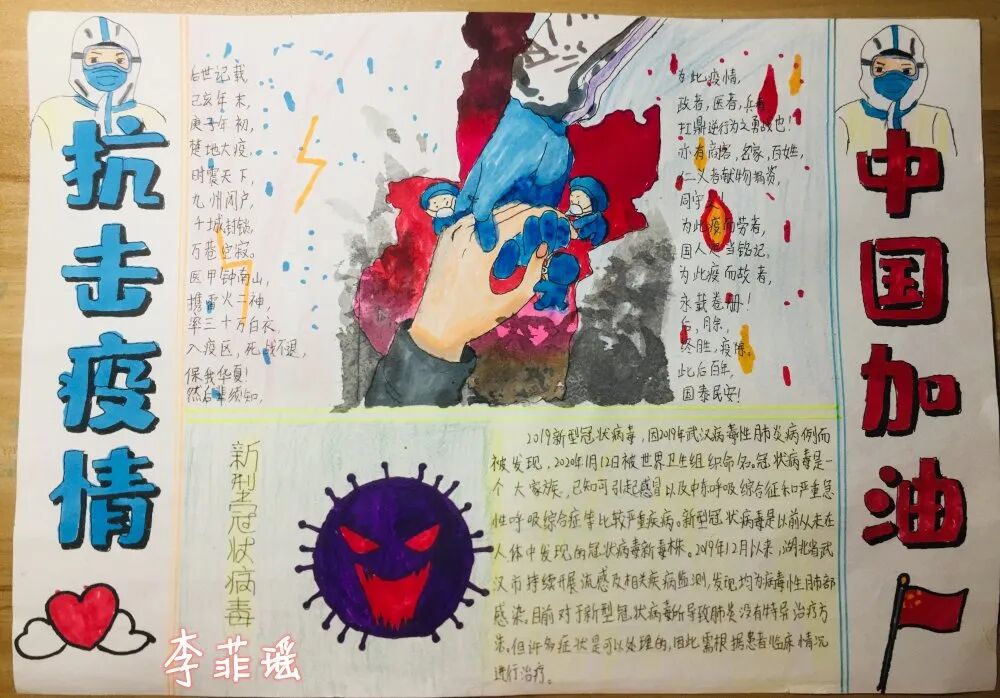 抗击疫情
后世记载,
己亥年末,
庚子年初,
楚地大疫,
时震天下,
九州闭户,
千城封锁,
万巷空寂。
医甲钟南山,
携雷火二神,
率三十万白衣,
入疫区,死战不退,
保我华夏!
然后辈须知,
为此疫情,
政者,医者,兵者
扛鼎逆行为之勇战也!
亦有商客,名家,百姓,
仁义者献物捐资,
同守!
为此疫而劳者,
国人当铭记,
为此疫而故者,
永载卷册!
后,月余,
终胜,疫除。
此后百年,
国泰民安!
中国加油
新型冠状病毒
2019新型冠状病毒,因2019年武汉病毒性肺炎病例而
被发现,2020年1月12日被世界卫生组织命名。冠状病毒是一
个大家族,已知可引起感冒以及中东呼吸综合征和严重急
性呼吸综合症等比较严重疾病。新型冠状病毒是以前从未在
人体中发现的冠状病毒新毒株。2019年12月以来,湖北省武
汉市持续开展流感及相关疾病监测,发现均为病毒性肺部
感染。目前对于新型冠状病毒所导致肺炎没有特异治疗方
法。但许多症状是可以处理的,因此需根据患者临床情况
进行治疗。
李菲瑶